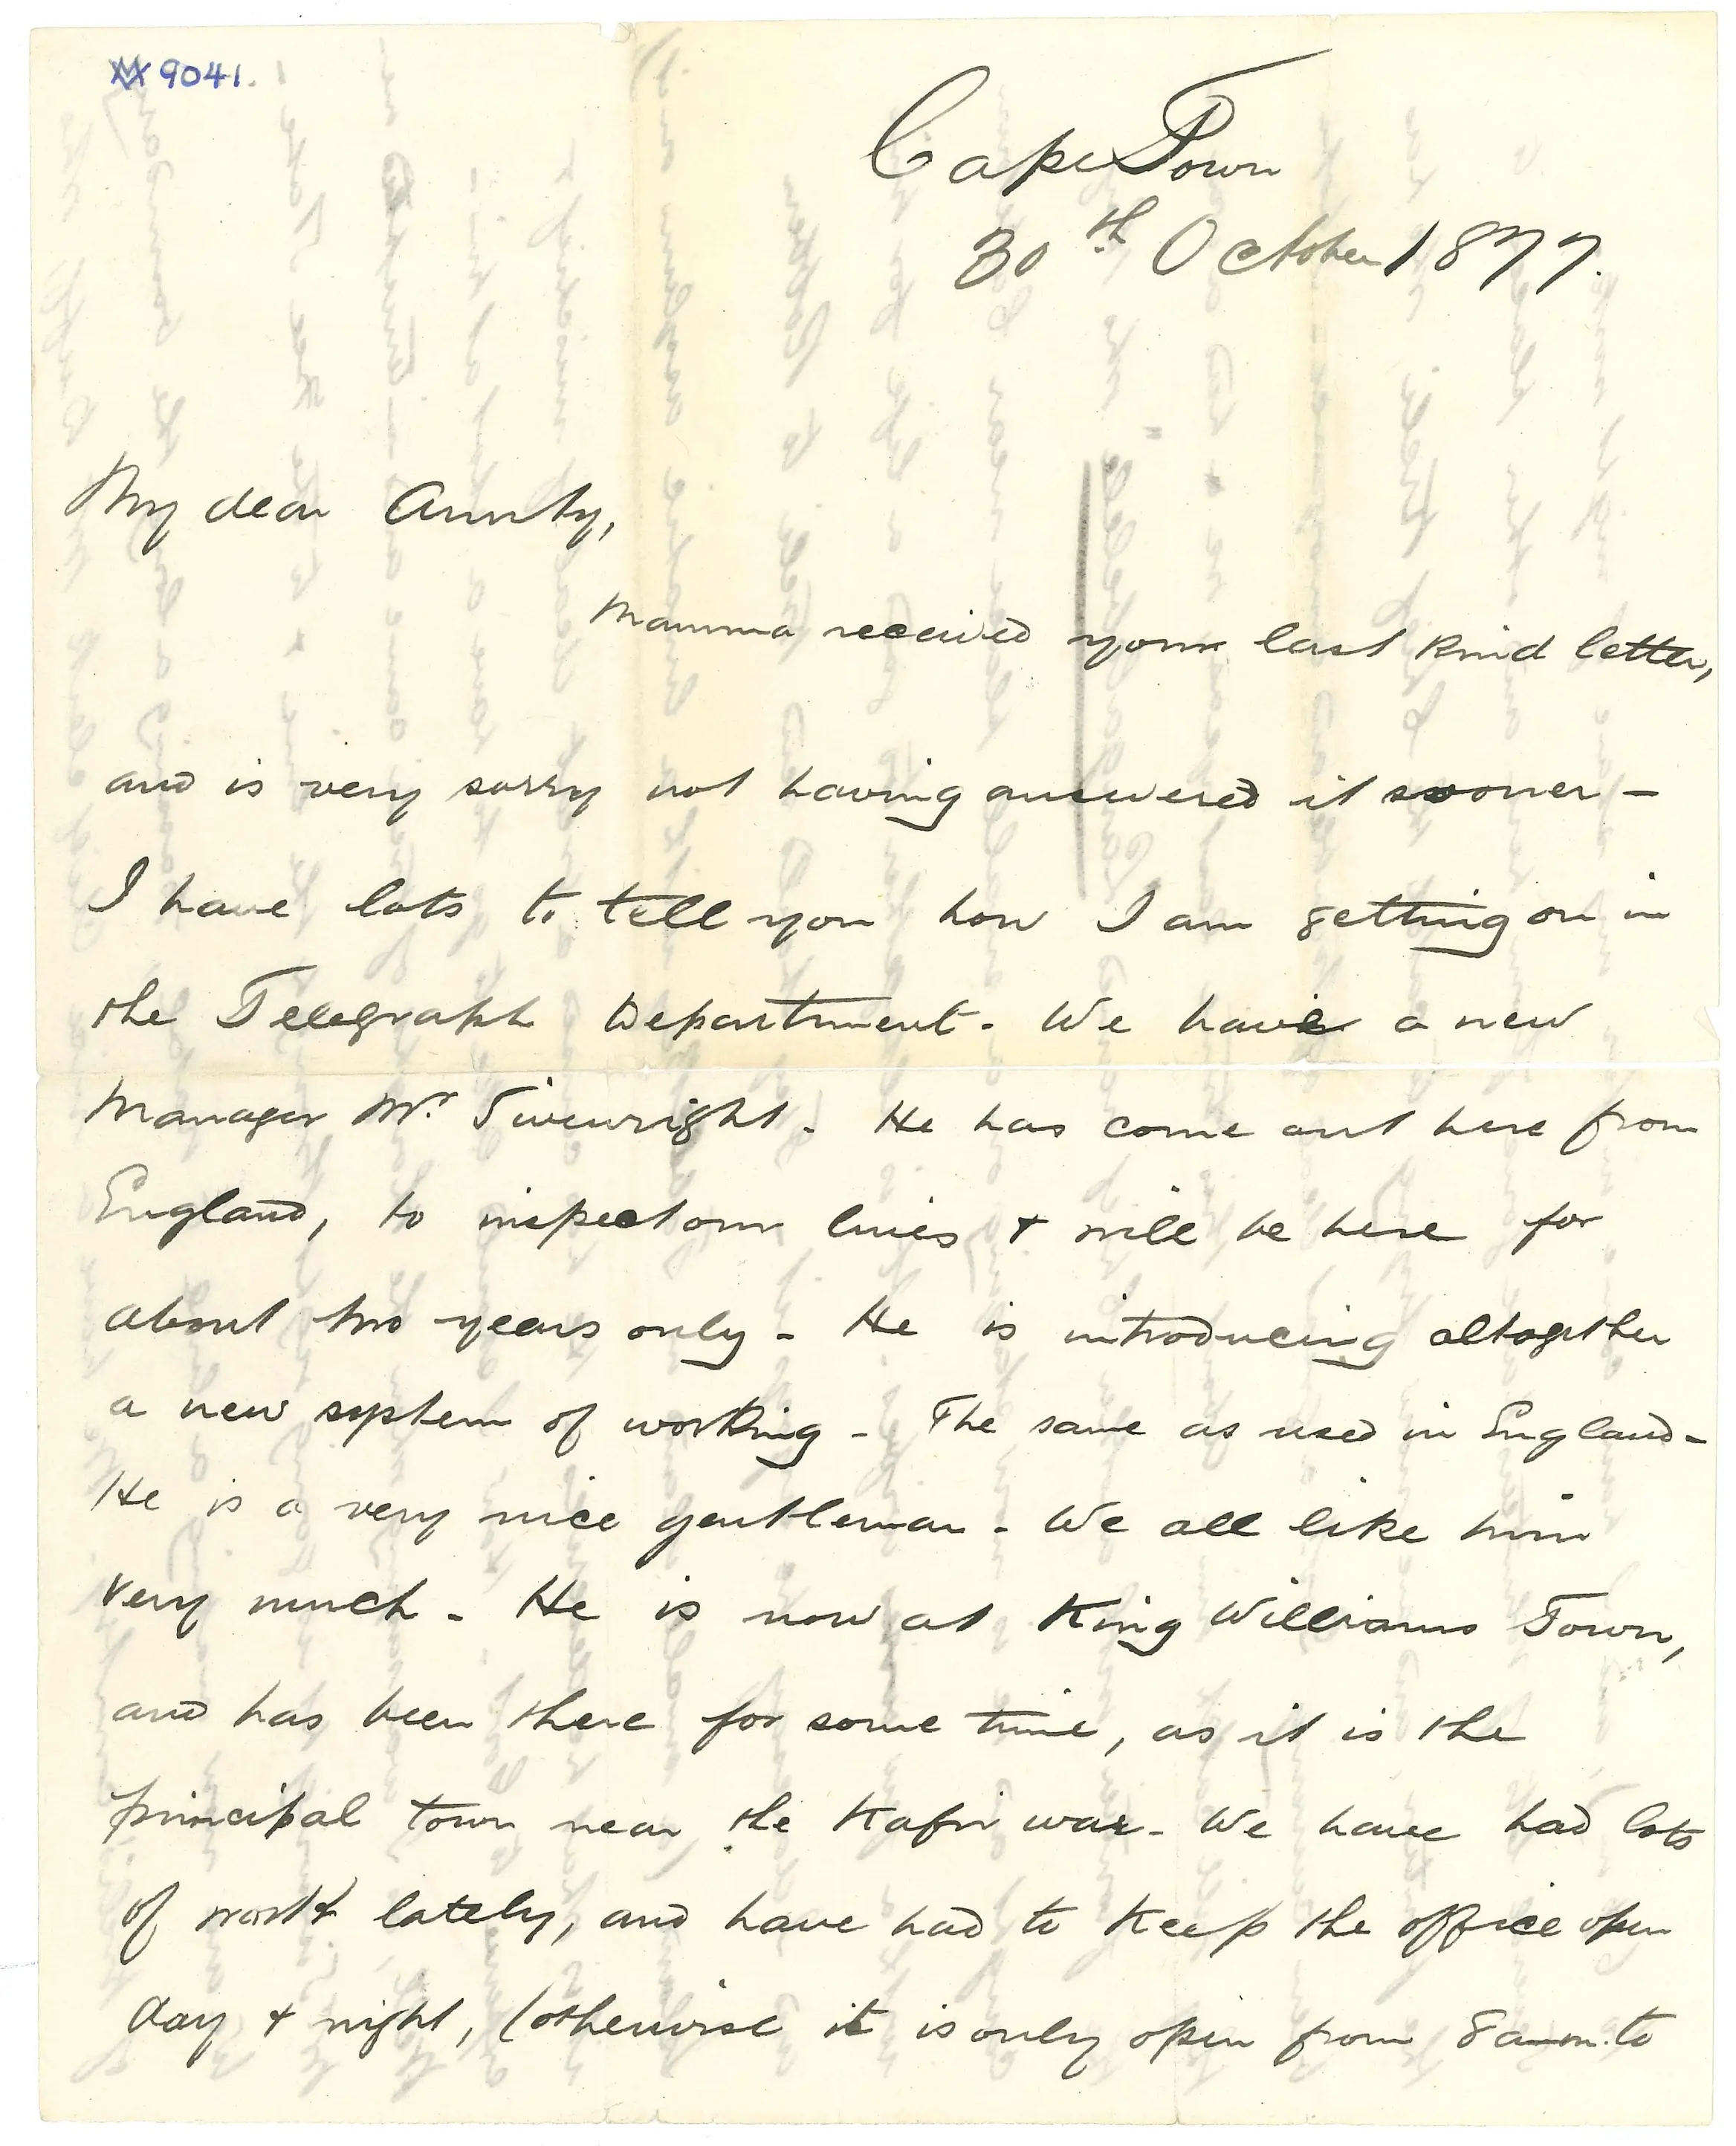 9041.
Cape Town
30th October 1877.
My dear Aunty,
Mamma received your last kind letter,
and is very sorry not having answered it sooner -
I have lots to tell you how I am getting on in
the Telegraph Department. We have a new
Manager Mr. Sivewright. He has come out here from
England, to inspect our lines & will be here for
about two years only - He is introducing altogether
a new system of working - The same as used in England -
He is a very nice gentleman. We all like him
very much - He is now at King Williams Town,
and has been there for some time, as it is the
principal town near the Kafir war - We have had lots
of work lately, and have had to keep the office open
day & night, (otherwise it is only open from 8 a.m. to